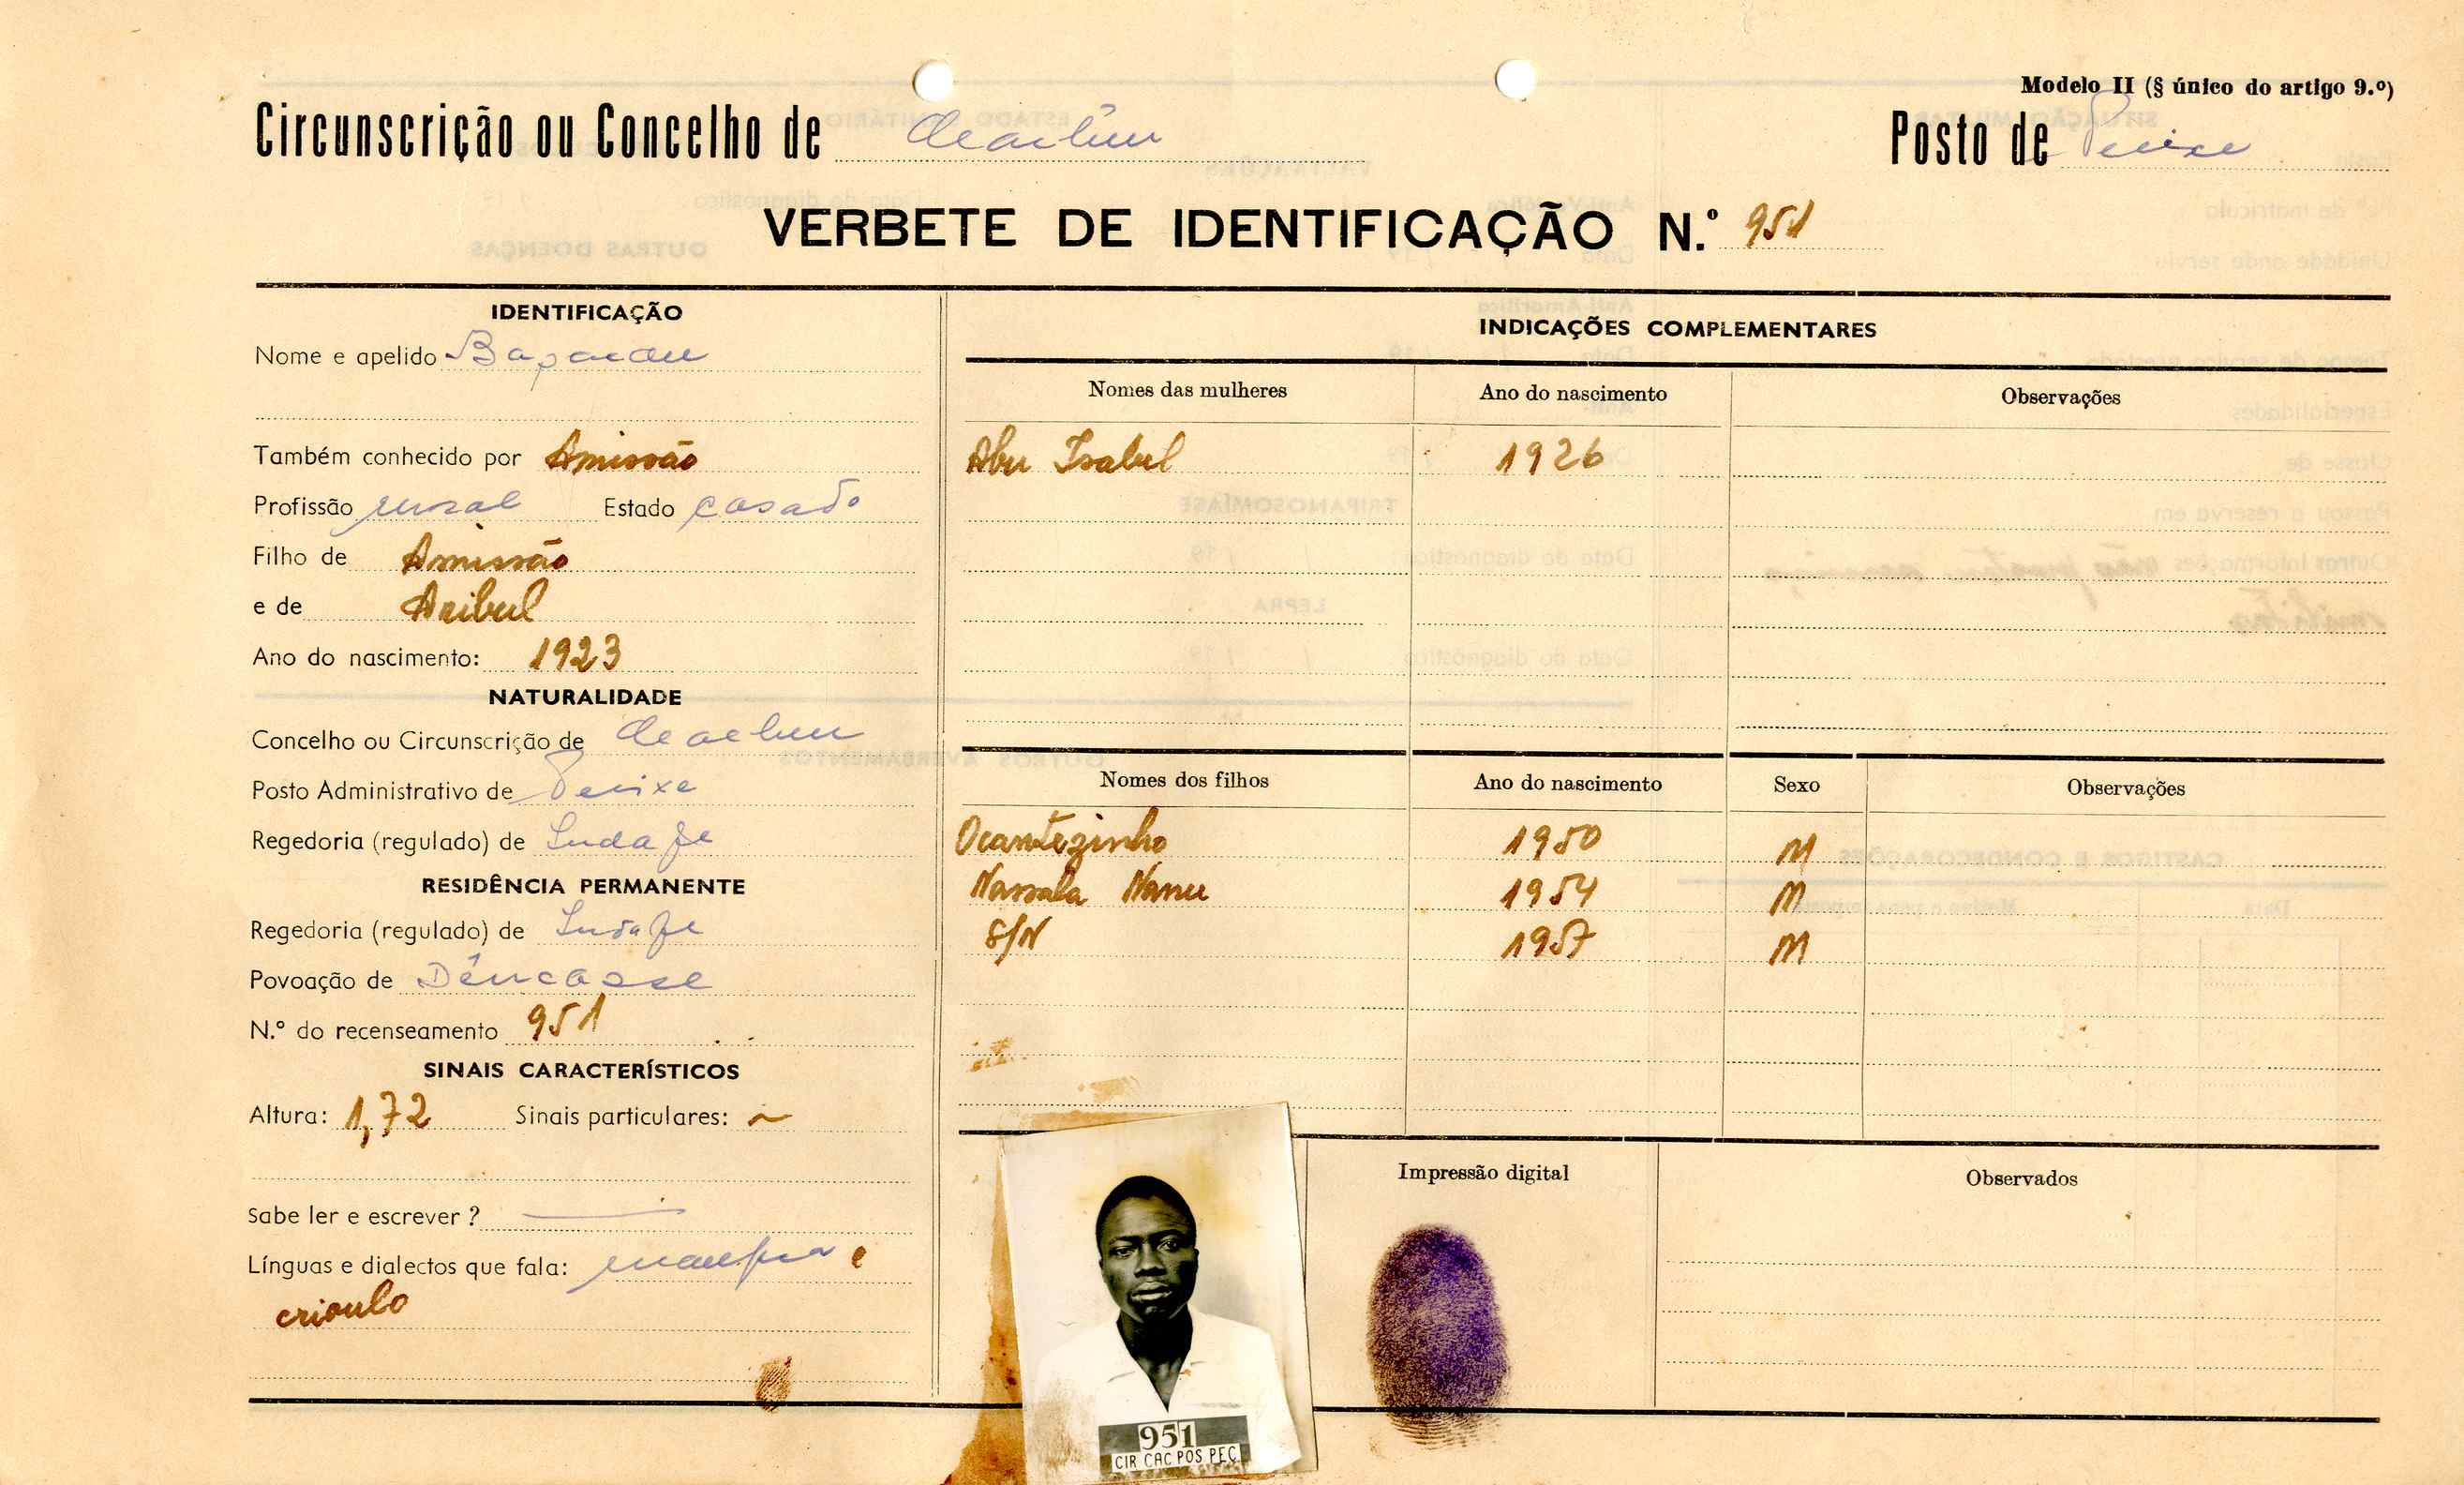 Modelo II (§ único do artigo 9.º)
Circunscrição ou Concelho de Cacheu
Posto de Pecixe
VERBETE DE IDENTIFICAÇÃO N.º 951
IDENTIFICAÇÃO
Nome e apelido
Também conhecido por Amissão
Profissão rural Estado casado
Filho de Amissão
e de Anibul
Ano do nascimento: 1923
NATURALIDADE
Concelho ou Circunscrição de Cacheu
Posto Administrativo de Pecixe
Regedoria (regulado) de
RESIDÊNCIA PERMANENTE
Regedoria (regulado) de
Povoação de
N.º do recenseamento 951
SINAIS CARACTERÍSTICOS
Altura: 1,72 Sinais particulares: ~
Sabe ler e escrever? —
Línguas e dialectos que fala: e
crioulo
INDICAÇÕES COMPLEMENTARES
Nomes das mulheres Ano do nascimento Observações
Abu Isabel 1926
Nomes dos filhos Ano do nascimento Sexo Observações
Ocantezinho 1950 M
Nassala Nanu 1954 M
S/N 1957 M
Impressão digital
Observados
951
CIR CAC POS PEC